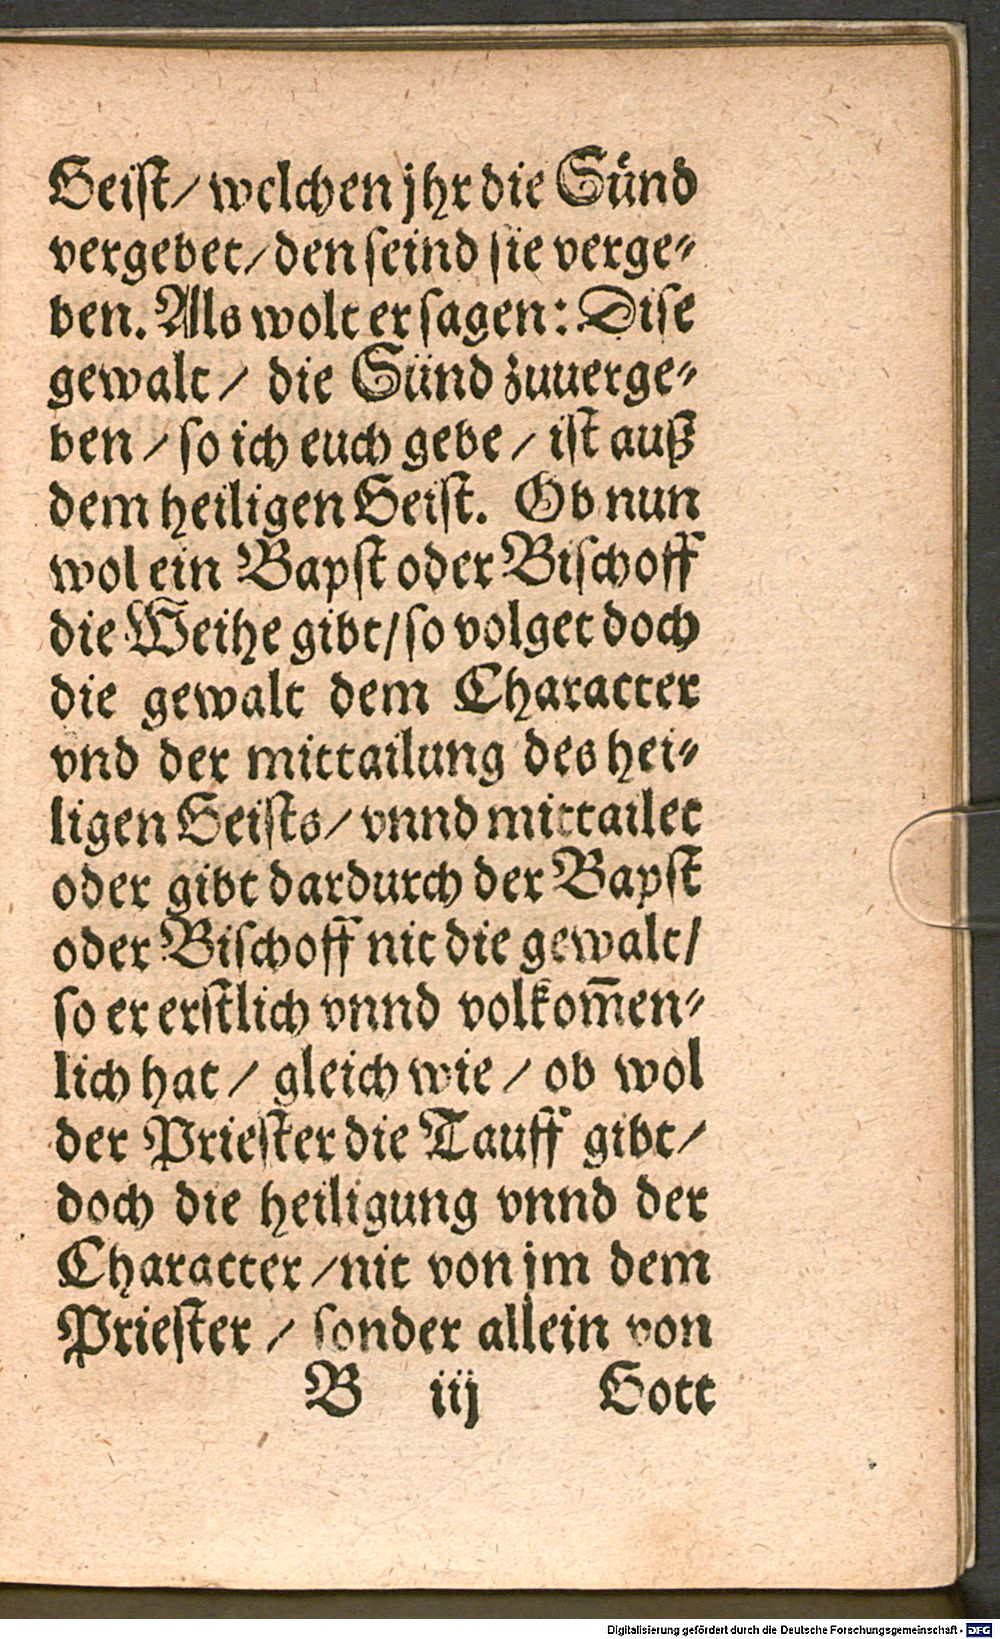 Geist/ welchen jhr die Sünd
vergebet/ den seind sie verge⸗
ben. Als wolt er sagen: Dise
gewalt / die Sünd zuuerge⸗
ben / so ich euch gebe / ist auß
dem heiligen Geist. Ob nun
wol ein Bapst oder Bischoff
die Weihe gibt/ so volget doch
die gewalt dem Character
vnd der mittailung des hei⸗
ligen Geists/ vnnd mittailet
oder gibt dardurch der Bapst
oder Bischoff nit die gewalt/
so er erstlich vnnd volkom̃en⸗
lich hat / gleich wie / ob wol
der Priester die Tauff gibt/
doch die heiligung vnnd der
Character /nit von jm dem
Priester / sonder allein von
B iij Gott
Digitalisierung gefördert durch die Deutsche Forschungsgemeinschaft - DFG